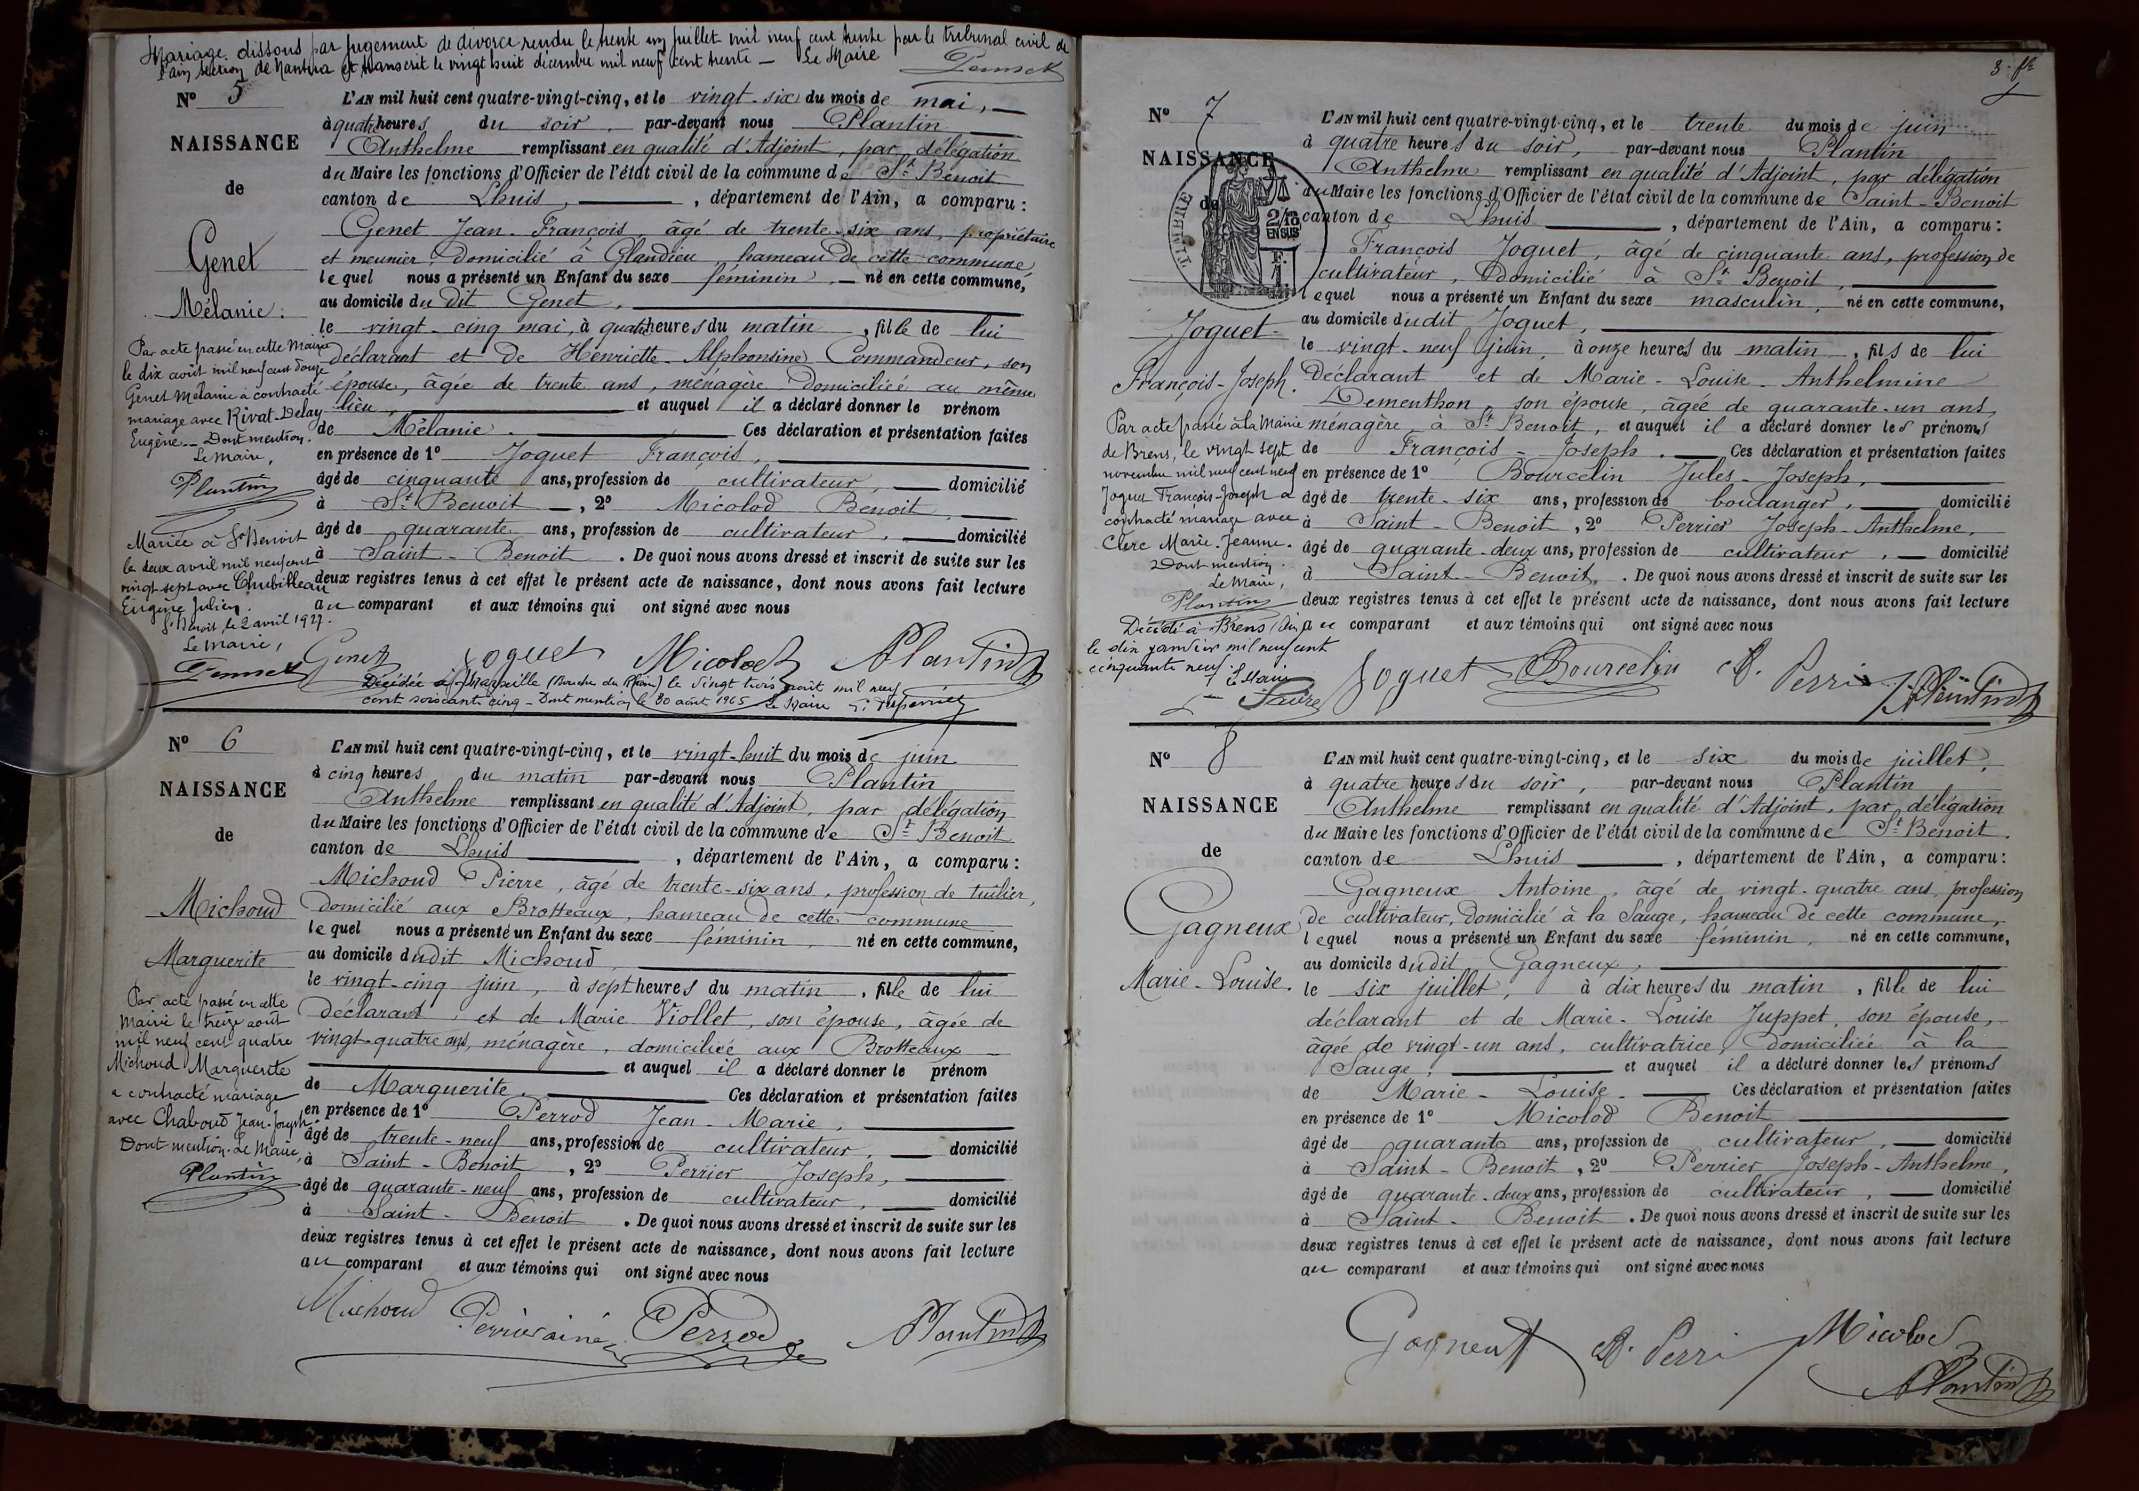 Mariage dissous par jugement de divorce rendu le trente un juillet mil neuf cent trente par le tribunal civil de
l'ain section de Nantua et transcrit le vingt huit décembre mil neuf cent trente — Le Maire
N° 5
NAISSANCE
de
Genet
Mélanie.
Par acte passé en cette Mairie
le dix août mil neuf cent douze
Genet Mélanie a contracté
mariage avec Rivat-Delay
Eugène. — Dont mention.
Le Maire,
Plantin
Mariée à St Benoit
le deux avril mil neuf cent
vingt sept avec Chubilleau
Eugène Julien.
St Benoit, le 2 avril 1927.
Le Maire,
L'AN mil huit cent quatre-vingt-cinq, et le vingt-six du mois de mai,
à quatre heures du soir, par-devant nous Plantin
Anthelme remplissant en qualité d'Adjoint, par délégation
du Maire les fonctions d'Officier de l'état civil de la commune de St Benoit
canton de Lhuis, département de l'Ain, a comparu :
Genet Jean-François, âgé de trente-six ans, propriétaire
et meunier, domicilié à Glandieu, hameau de cette commune,
lequel nous a présenté un Enfant du sexe féminin, né en cette commune,
au domicile du dit Genet,
le vingt-cinq mai, à quatre heures du matin, fille de lui
déclarant et de Henriette-Alphonsine Commandeur, son
épouse, âgée de trente ans, ménagère domiciliée au même
lieu, et auquel il a déclaré donner le prénom
de Mélanie. Ces déclaration et présentation faites
en présence de 1° Joguet François,
âgé de cinquante ans, profession de cultivateur, domicilié
à St Benoit, 2° Micolod Benoit,
âgé de quarante ans, profession de cultivateur, domicilié
à Saint-Benoit. De quoi nous avons dressé et inscrit de suite sur les
deux registres tenus à cet effet le présent acte de naissance, dont nous avons fait lecture
au comparant et aux témoins qui ont signé avec nous
Genet Joguet Micolod A Plantin
Décédée à Marseille (Bouches du Rhône) le vingt trois août mil neuf
cent soixante cinq — Dont mention le 30 août 1965 Le Maire
N° 6
NAISSANCE
de
Michoud
Marguerite
Par acte passé en cette
Mairie le treize août
mil neuf cent quatre
Michoud Marguerite
a contracté mariage
avec Chaboud Jean-Joseph.
Dont mention. Le Maire,
Plantin
L'AN mil huit cent quatre-vingt-cinq, et le vingt-huit du mois de juin
à cinq heures du matin par-devant nous Plantin
Anthelme remplissant en qualité d'Adjoint, par délégation
du Maire les fonctions d'Officier de l'état civil de la commune de St Benoit
canton de Lhuis, département de l'Ain, a comparu :
Michoud Pierre, âgé de trente-six ans, profession de tuilier,
domicilié aux Brotteaux, hameau de cette commune
lequel nous a présenté un Enfant du sexe féminin, né en cette commune,
au domicile dudit Michoud,
le vingt-cinq juin, à sept heures du matin, fille de lui
déclarant, et de Marie Viollet, son épouse, âgée de
vingt-quatre ans, ménagère, domiciliée aux Brotteaux
et auquel il a déclaré donner le prénom
de Marguerite. Ces déclaration et présentation faites
en présence de 1° Perrod Jean-Marie,
âgé de trente-neuf ans, profession de cultivateur, domicilié
à Saint-Benoit, 2° Perrier Joseph,
âgé de quarante-neuf ans, profession de cultivateur, domicilié
à Saint-Benoit. De quoi nous avons dressé et inscrit de suite sur les
deux registres tenus à cet effet le présent acte de naissance, dont nous avons fait lecture
au comparant et aux témoins qui ont signé avec nous
Michoud Perrier ainé Perrod A Plantin
N° 7
NAISSANCE
de
TIMBRE
2/10 EN SUS
Joguet
François-Joseph.
Par acte passé à la Mairie
de Brens, le vingt sept
novembre mil neuf cent neuf
Joguet François-Joseph a
contracté mariage avec
Clerc Marie-Jeanne.
Dont mention.
Le Maire,
Plantin
Décédé à Brens (Ain)
le dix janvier mil neuf cent
cinquante neuf.
Le Maire
L'AN mil huit cent quatre-vingt-cinq, et le trente du mois de juin
à quatre heures du soir, par-devant nous Plantin
Anthelme remplissant en qualité d'Adjoint, par délégation
du Maire les fonctions d'Officier de l'état civil de la commune de Saint-Benoit
canton de Lhuis, département de l'Ain, a comparu :
François Joguet, âgé de cinquante ans, profession de
cultivateur, domicilié à St Benoit,
lequel nous a présenté un Enfant du sexe masculin, né en cette commune,
au domicile dudit Joguet,
le vingt-neuf juin, à onze heures du matin, fils de lui
déclarant et de Marie-Louise-Anthelmine
Dementhon, son épouse, âgée de quarante-un ans,
ménagère, à St Benoit, et auquel il a déclaré donner les prénoms
de François-Joseph. Ces déclaration et présentation faites
en présence de 1° Bourcelin Jules-Joseph,
âgé de trente-six ans, profession de boulanger, domicilié
à Saint-Benoit, 2° Perrier Joseph-Anthelme,
âgé de quarante-deux ans, profession de cultivateur, domicilié
à Saint-Benoit. De quoi nous avons dressé et inscrit de suite sur les
deux registres tenus à cet effet le présent acte de naissance, dont nous avons fait lecture
au comparant et aux témoins qui ont signé avec nous
Joguet Bourcelin A. Perrier A Plantin
N° 8
NAISSANCE
de
Gagneux
Marie-Louise.
L'AN mil huit cent quatre-vingt-cinq, et le six du mois de juillet,
à quatre heures du soir, par-devant nous Plantin
Anthelme remplissant en qualité d'Adjoint, par délégation
du Maire les fonctions d'Officier de l'état civil de la commune de St Benoit.
canton de Lhuis, département de l'Ain, a comparu :
Gagneux Antoine, âgé de vingt-quatre ans, profession
de cultivateur, domicilié à la Sauge, hameau de cette commune,
lequel nous a présenté un Enfant du sexe féminin, né en cette commune,
au domicile dudit Gagneux,
le six juillet, à dix heures du matin, fille de lui
déclarant et de Marie-Louise Juppet, son épouse,
âgée de vingt-un ans, cultivatrice, domiciliée à la
Sauge, et auquel il a déclaré donner les prénoms
de Marie-Louise. Ces déclaration et présentation faites
en présence de 1° Micolod Benoit
âgé de quarante ans, profession de cultivateur, domicilié
à Saint-Benoit, 2° Perrier Joseph-Anthelme,
âgé de quarante-deux ans, profession de cultivateur, domicilié
à Saint-Benoit. De quoi nous avons dressé et inscrit de suite sur les
deux registres tenus à cet effet le présent acte de naissance, dont nous avons fait lecture
au comparant et aux témoins qui ont signé avec nous
Gagneux A. Perrier Micolod
A Plantin